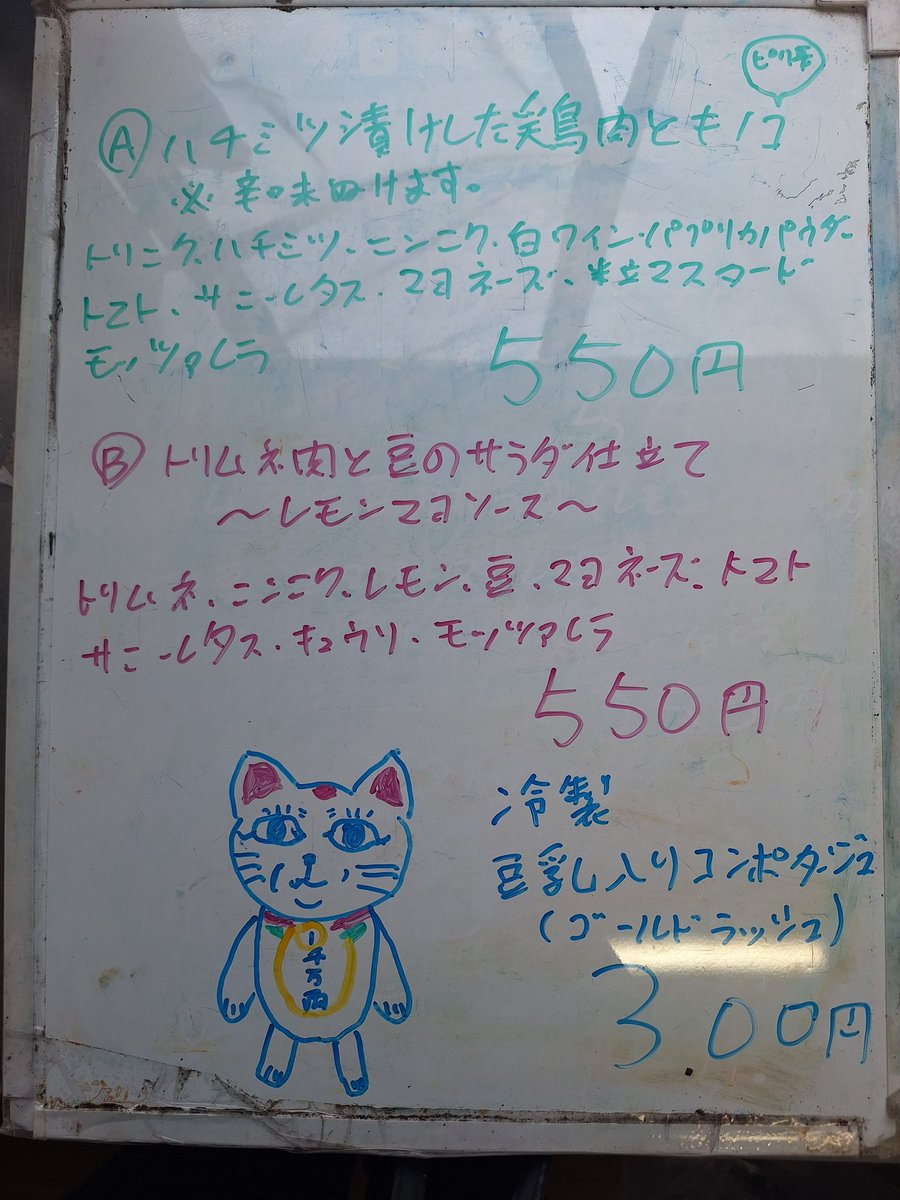 ピリ辛
Ⓐハチミツ漬けした鶏肉とキノコ
※辛味抜けます。
トリニク、ハチミツ、ニンニク、白ワイン・パプリカパウダー
トマト、サニーレタス・マヨネーズ、粒マスタード
モッツァレラ
550円
Ⓑトリムネ肉と豆のサラダ仕立て
〜レモンマヨソース〜
トリムネ、ニンニク、レモン、豆、マヨネーズ、トマト
サニーレタス・キュウリ・モッツァレラ
550円
冷製
豆乳入りコンポタージュ
(ゴールドラッシュ)
300円
千万両